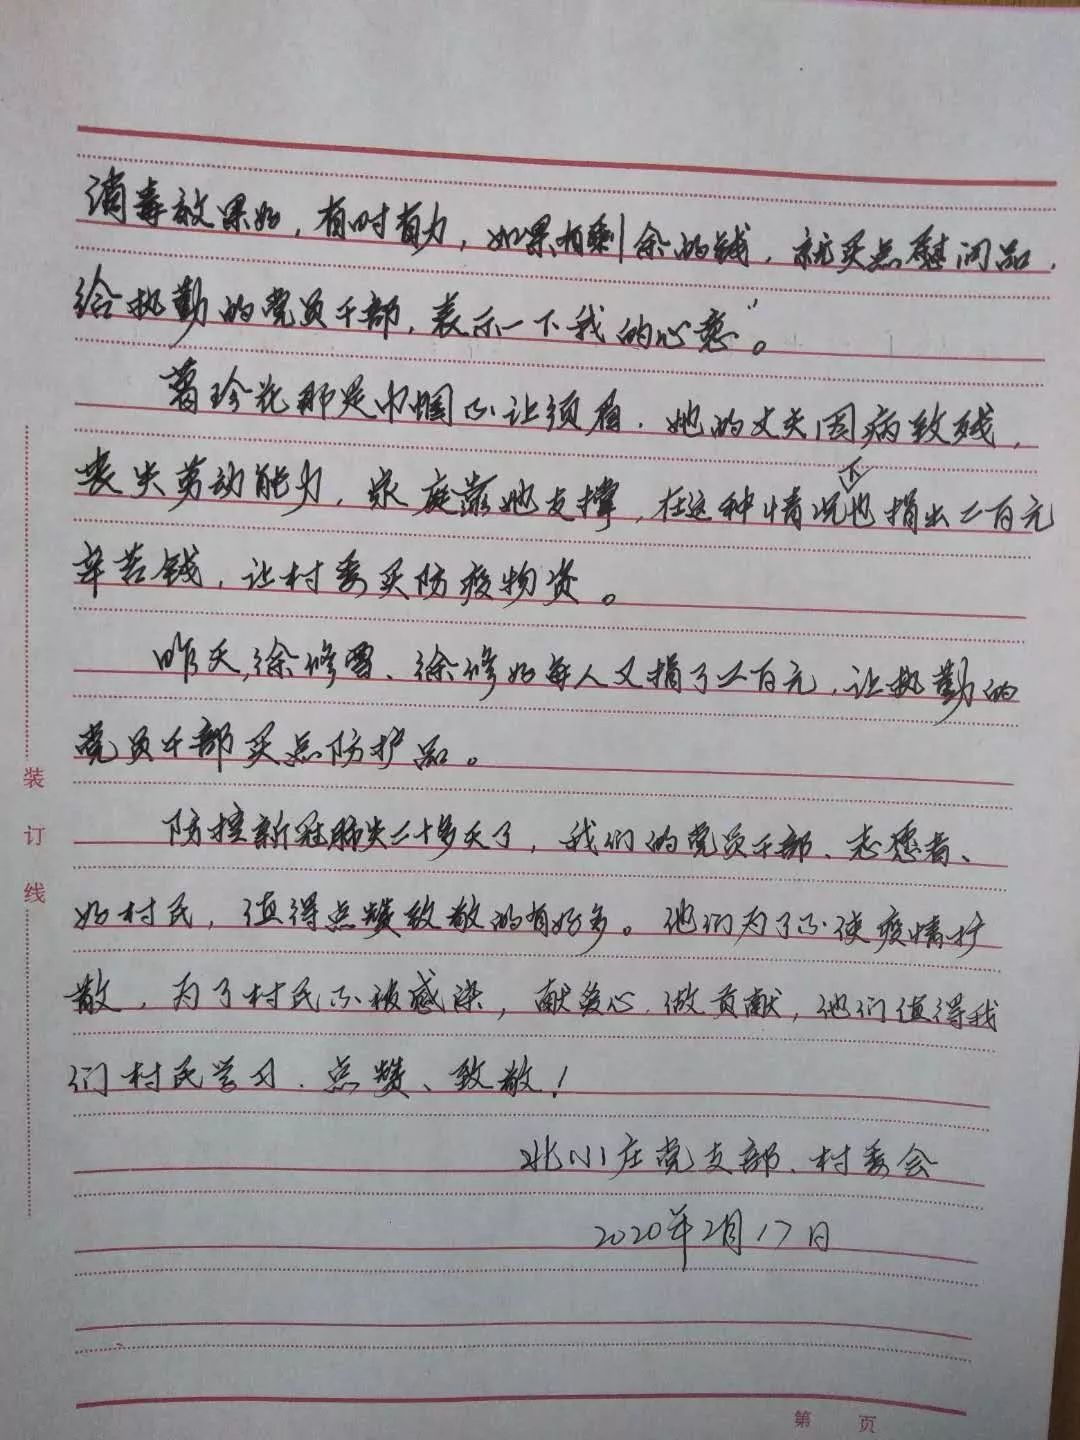 消毒效果好，有时有力，如果有剩余的钱，就买点慰问品，
给执勤的党员干部，表示一下我的心意"。
葛珍花那是巾帼不让须眉，她的丈夫因病致残，
丧失劳动能力，家庭靠她支撑，在这种情况下也捐出二百元
辛苦钱，让村委买防疫物资。
昨天，徐修雷、徐修好每人又捐了二百元，让执勤的
党员干部买点防护品。
防控新冠肺炎二十多天了，我们的党员干部、志愿者、
好村民，值得点赞致敬的有好多。他们为了不使疫情扩
散，为了村民不被感染，献爱心，做贡献，他们值得我
们村民学习、点赞、致敬！
北小庄党支部、村委会
2020年2月17日
装
订
线
第 页